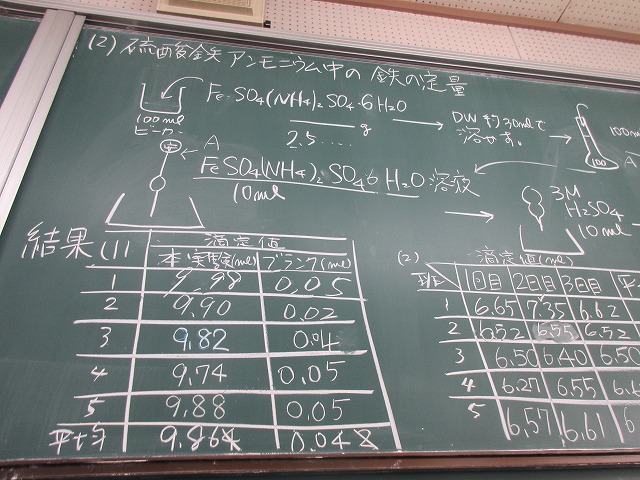 (2) 硫酸鉄アンモニウム中の鉄の定量
100ml
ビーカー
FeSO4(NH4)2SO4・6H2O
2.5.....g
DW 約30mlで
溶かす。
100
100ml
A
A
FeSO4(NH4)2SO4・6H2O 溶液
10ml
3M
H2SO4
10ml
結果 (1)
滴定値
本実験(ml) ブランク(ml)
1 9.98 0.05
2 9.90 0.02
3 9.82 0.04
4 9.74 0.05
5 9.88 0.05
平均 9.864 0.042
(2)
滴定値(ml)
班 1回目 2回目 3回目 平
1 6.65 7.35 6.62
2 6.52 6.55 6.52
3 6.50 6.40 6.50
4 6.27 6.55
5 6.57 6.61